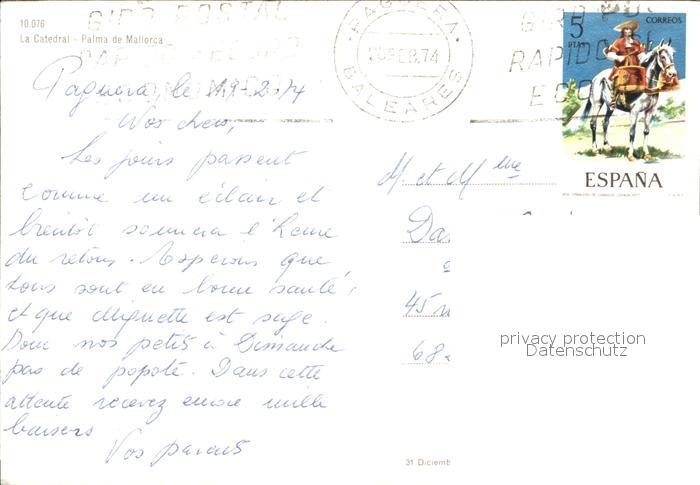 10.076
La Catedral - Palma de Mallorca
GIRO POSTAL
RAPIDO
ECONO
PAGUERA
20 FEB. 74
BALEARES
GIRO POS
RAPIDO
ECON
5
PTAS
CORREOS
ESPAÑA
Paguera, le 19-2-74
Nos chers,
Les jours passent
comme un éclair et
bientôt sonnera l'heure
du retour. Espérons que
tous sont en bonne santé,
et que Miquette est sage.
Donc nos petits à Dimanche
pas de popote. Dans cette
attente recevez encore mille
baisers
Vos parents
M. et Mme
Da
45
68
privacy protection
Datenschutz
31 Diciemb